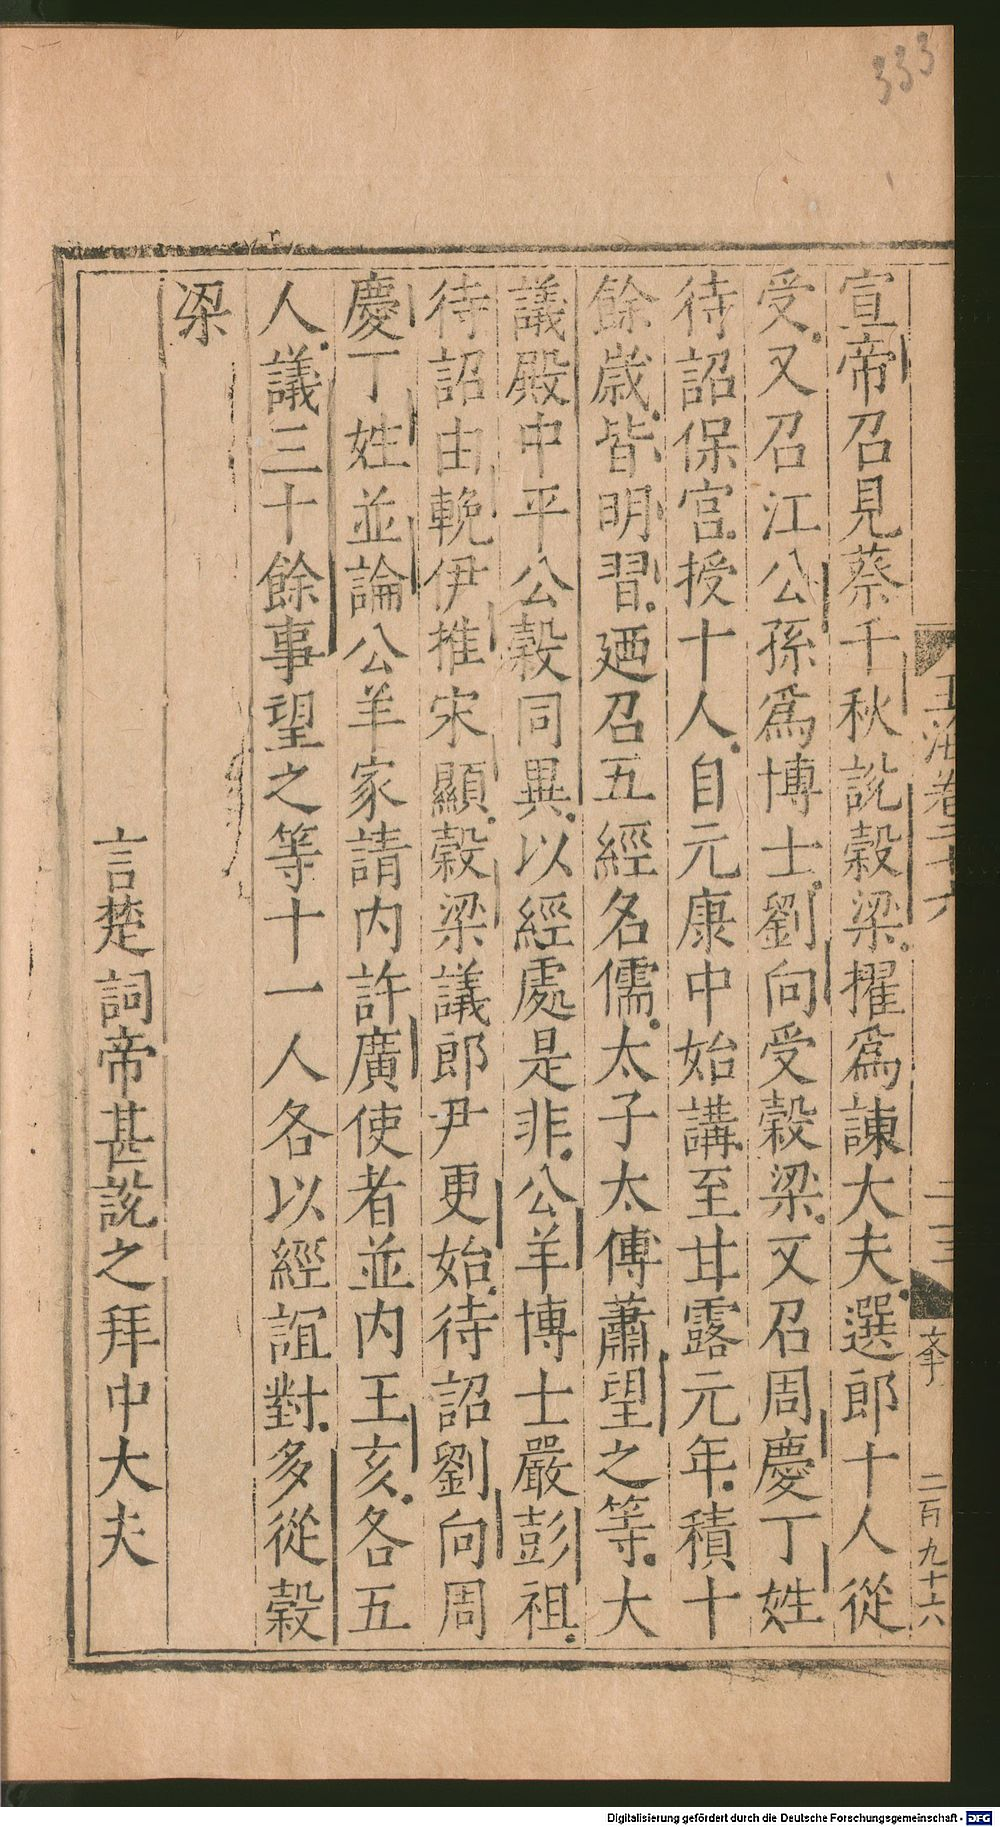 333
玉海卷三十六
二十三
二百九十六
宣帝召見蔡千秋說穀梁擢爲諫大夫選郎十人從
受又召江公孫爲博士劉向受穀梁又召周慶丁姓
待詔保官授十人自元康中始講至甘露元年積十
餘歲皆明習廼召五經名儒太子太傅蕭望之等大
議殿中平公穀同異以經處是非公羊博士嚴彭祖
待詔由輓伊推宋顯穀梁議郎尹更始待詔劉向周
慶丁姓並論公羊家請内許廣使者並内王亥各五
人議三十餘事望之等十一人各以經誼對多從穀
梁
言楚詞帝甚說之拜中大夫
Digitalisierung gefördert durch die Deutsche Forschungsgemeinschaft - DFG